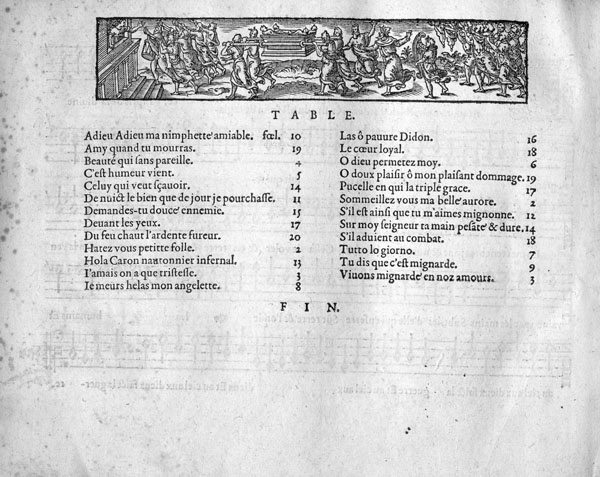 TABLE.
Adieu Adieu ma nimphette amiable. fœl. 10
Amy quand tu mourras. 19
Beauté qui sans pareille. 4
C'est humeur vient. 5
Celuy qui veut sçauoir. 14
De nuict le bien que de jour je pourchasse. 11
Demandes-tu douce' ennemie. 15
Deuant les yeux. 17
Du feu chaut l'ardente fureur. 20
Hatez vous petitte folle. 2
Hola Caron nautonnier infernal. 13
I'amais on a que tristesse. 3
Ie meurs helas mon angelette. 8
Las ô pauure Didon. 16
Le cœur loyal. 18
O dieu permetez moy. 6
O doux plaisir ô mon plaisant dommage. 19
Pucelle en qui la triple grace. 17
Sommeillez vous ma belle' aurore. 2
S'il est ainsi que tu m'aimes mignonne. 12
Sur moy seigneur ta main pesãte' & dure. 14
S'il aduient au combat. 18
Tutto lo giorno. 7
Tu dis que c'est mignarde. 9
Viuons mignarde' en noz amours. 3
FIN.